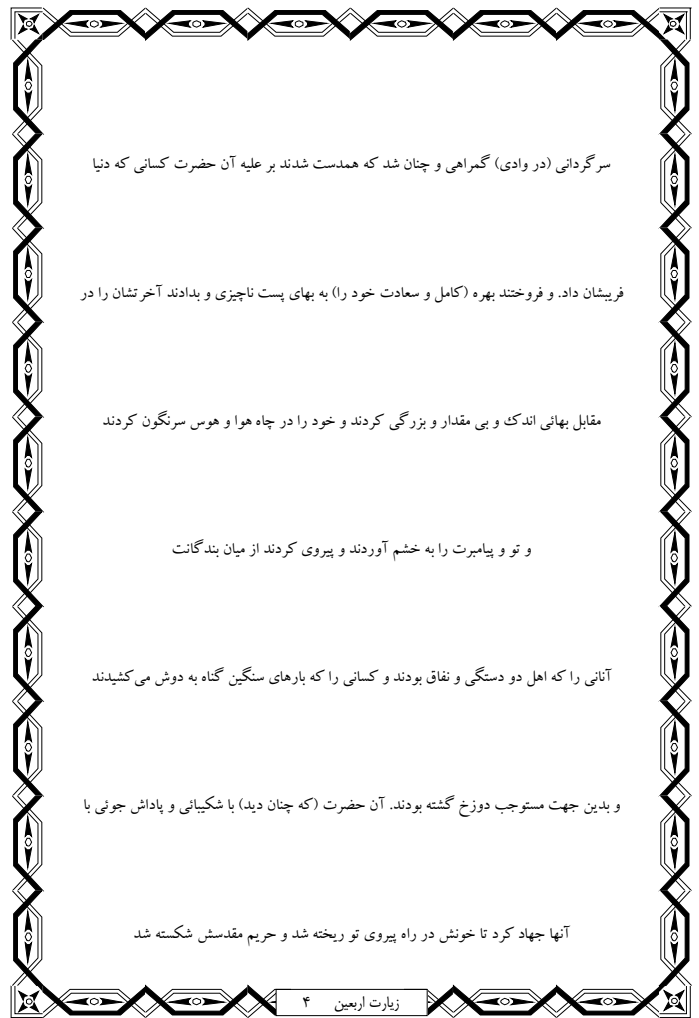 سرگردانی (در وادی) گمراهی و چنان شد که همدست شدند بر علیه آن حضرت کسانی که دنیا
فریبشان داد. و فروختند بهره (کامل و سعادت خود را) به بهای پست ناچیزی و بدادند آخرتشان را در
مقابل بهائی اندک و بی مقدار و بزرگی کردند و خود را در چاه هوا و هوس سرنگون کردند
و تو و پیامبرت را به خشم آوردند و پیروی کردند از میان بندگانت
آنانی را که اهل دو دستگی و نفاق بودند و کسانی را که بارهای سنگین گناه به دوش می‌کشیدند
و بدین جهت مستوجب دوزخ گشته بودند. آن حضرت (که چنان دید) با شکیبائی و پاداش جوئی با
آنها جهاد کرد تا خونش در راه پیروی تو ریخته شد و حریم مقدسش شکسته شد
زیارت اربعین ۴